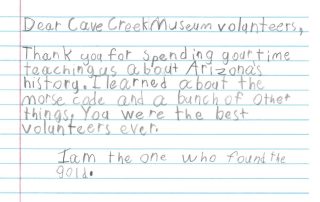 Dear Cave Creek Museum volanteers,
Thank you for spending your time
teaching us about Arizona's
history. I learned about the
morse code and a bunch of other
things, You were the best
volunteers ever.
I am the one who found the
gold.